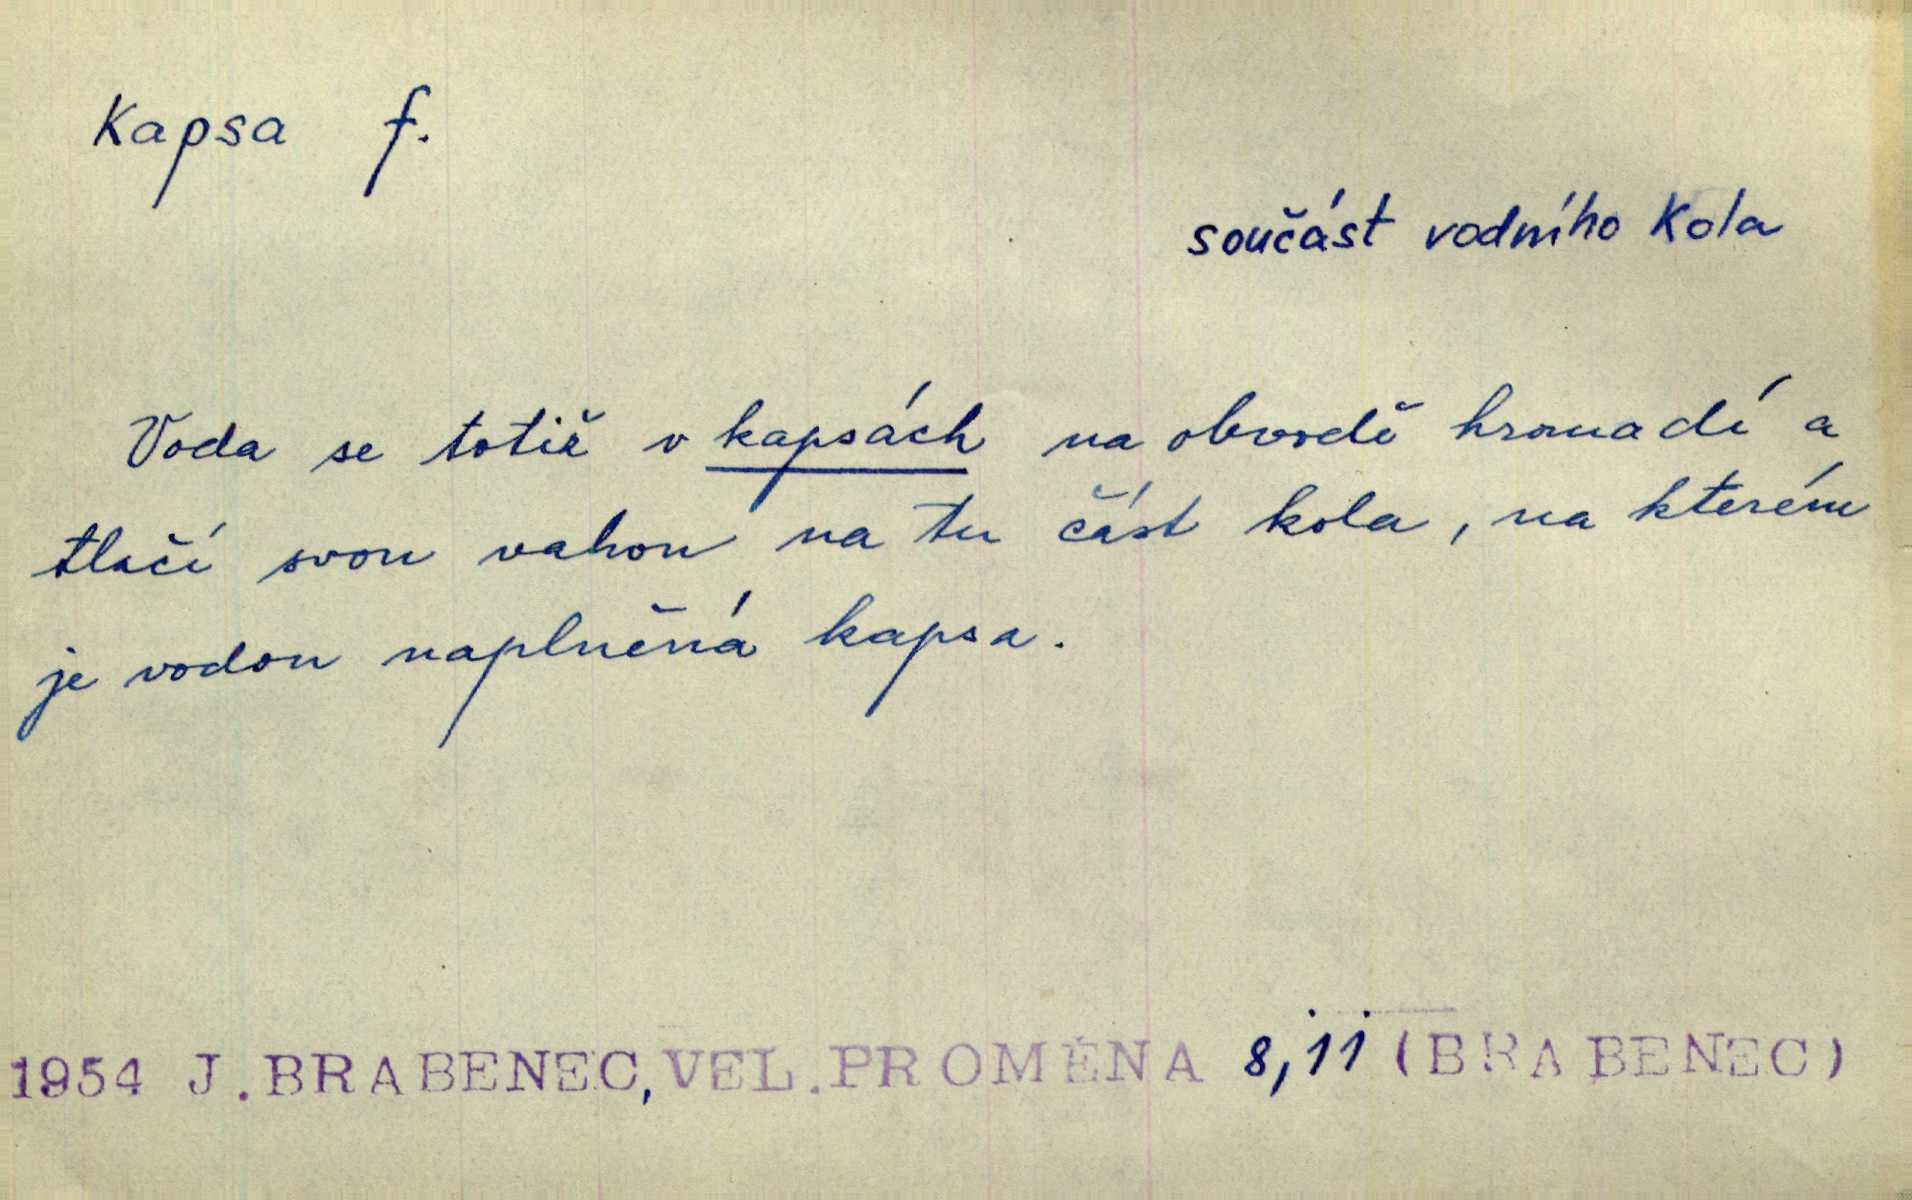 Kapsa f.
součást vodního kola
Voda se totiž v kapsách na obvodě hromadí a
tlačí svou vahou na tu část kola, na kterém
je vodou naplněná kapsa.
1954 J. BRABENEC, VEL. PROMĚNA 8,11 (BRABENEC)